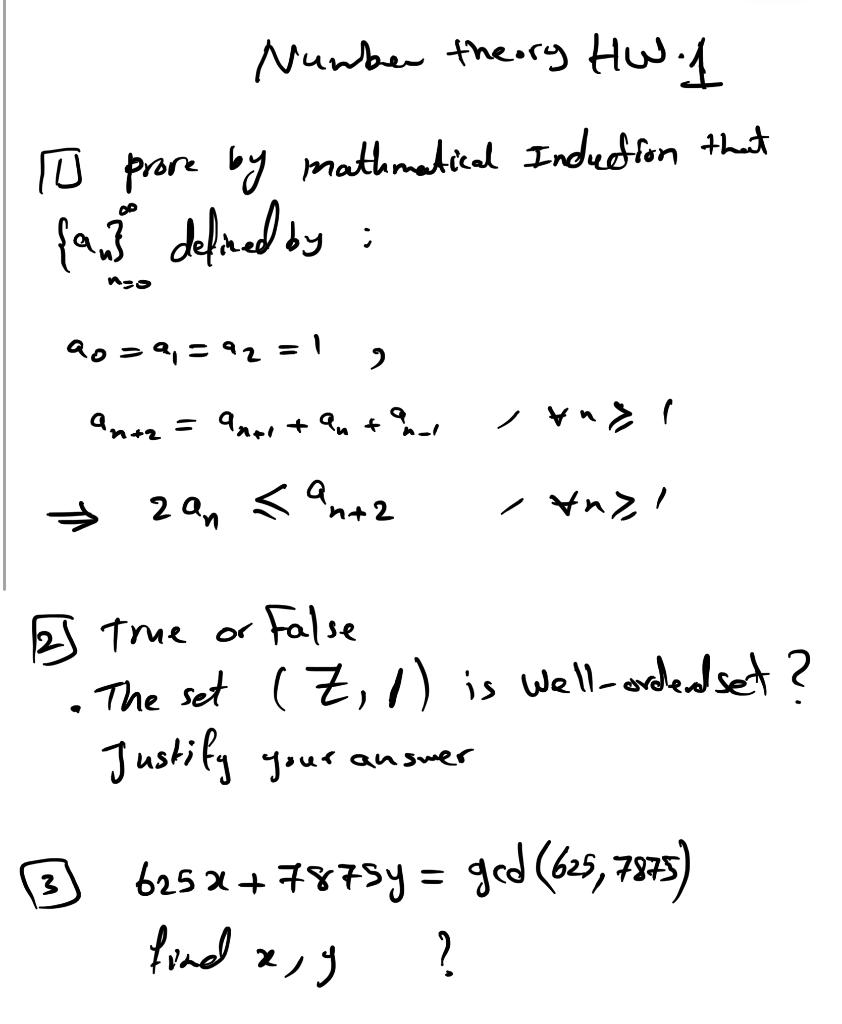 Number theory HW.1
1 prove by mathmatical Induction that
{aₙ}∞ n=0 defined by :
a₀ = a₁ = a₂ = 1 ,
aₙ₊₂ = aₙ₊₁ + aₙ + aₙ₋₁ , ∀n ⩾ 1
⇒ 2aₙ ⩽ aₙ₊₂ , ∀n ⩾ 1
2 True or False
. The set (Z, /) is well-orderd set ?
Justify your answer
3 625x + 7875y = gcd(625, 7875)
find x, y ?